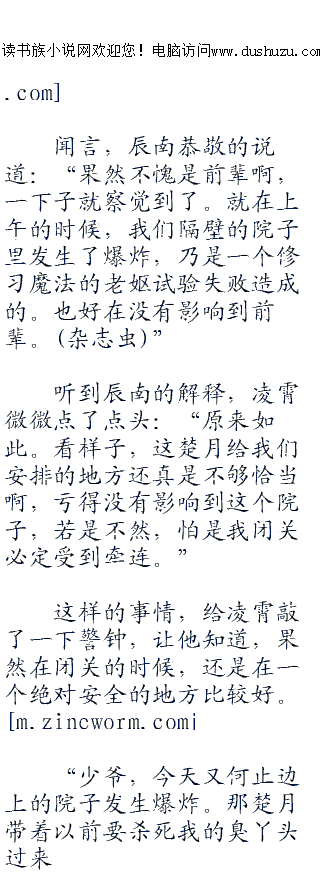 读书族小说网欢迎您！电脑访问www.dushuzu.com
.com]
闻言，辰南恭敬的说
道：“果然不愧是前辈啊，
一下子就察觉到了。就在上
午的时候，我们隔壁的院子
里发生了爆炸，乃是一个修
习魔法的老妪试验失败造成
的。也好在没有影响到前
辈。(杂志虫)”
听到辰南的解释，凌霄
微微点了点头：“原来如
此。看样子，这楚月给我们
安排的地方还真是不够恰当
啊，亏得没有影响到这个院
子，若是不然，怕是我闭关
必定受到牵连。”
这样的事情，给凌霄敲
了一下警钟，让他知道，果
然在闭关的时候，还是在一
个绝对安全的地方比较好。
[m.zincworm.com|
“少爷，今天又何止边
上的院子发生爆炸。那楚月
带着以前要杀死我的臭丫头
过来